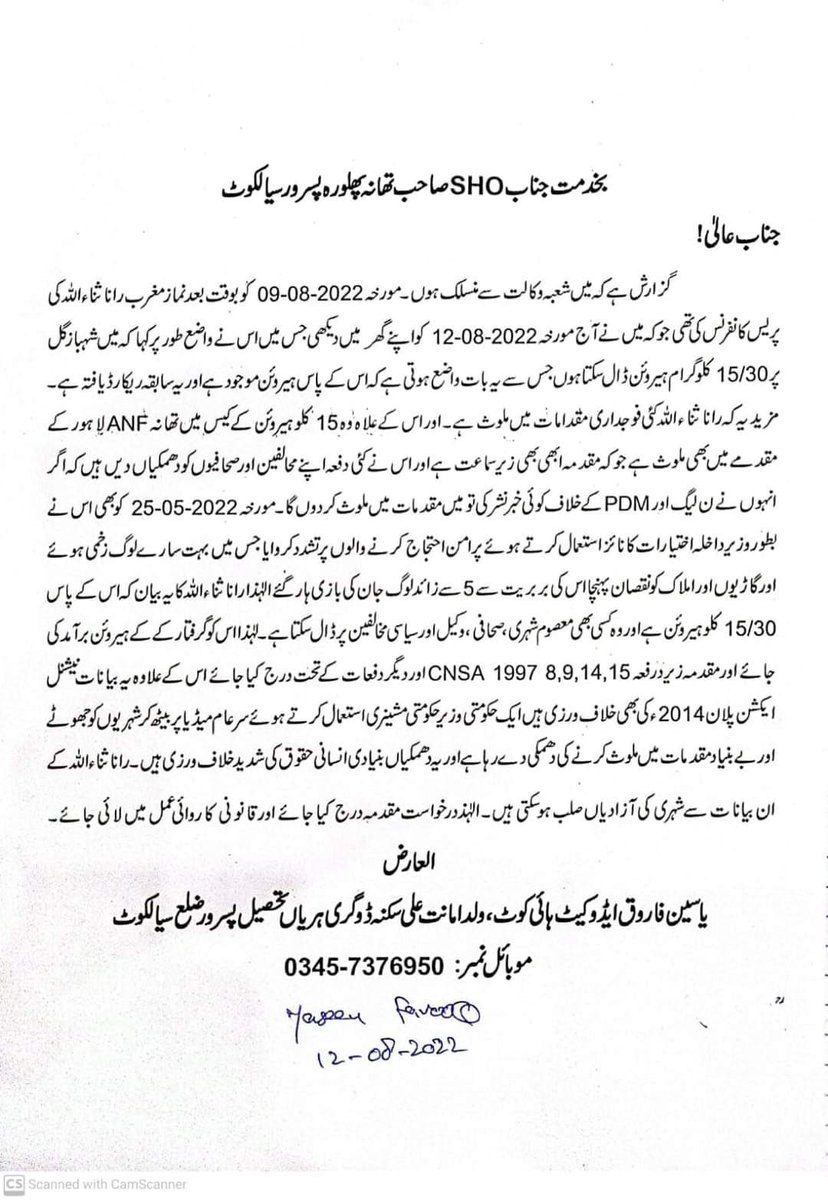 بخدمت جناب SHO صاحب تھانہ پھلورہ پسرور سیالکوٹ
جناب عالیٰ!
گزارش ہے کہ میں شعبہ وکالت سے منسلک ہوں۔ مورخہ 09-08-2022 کو بوقت بعد نماز مغرب رانا ثناء اللہ کی
پریس کانفرنس کی تھی جو کہ میں نے آج مورخہ 12-08-2022 کو اپنے گھر میں دیکھی جس میں اس نے واضع طور پر کہا کہ میں شہباز گل
پر 15/30 کلوگرام ہیروئن ڈال سکتا ہوں جس سے یہ بات واضع ہوتی ہے کہ اس کے پاس ہیروئن موجود ہے اور یہ سابقہ ریکارڈ یافتہ ہے۔
مزید یہ کہ رانا ثناء اللہ کئی فوجداری مقدامات میں ملوث ہے۔ اور اس کے علاہ وہ 15 کلو ہیروئن کے کیس میں تھانہ ANF لاہور کے
مقدمے میں بھی ملوث ہے جو کہ مقدمہ ابھی بھی زیر ساعت ہے اور اس نے کئی دفعہ اپنے مخالفین اور صحافیوں کو دھمکیاں دیں ہیں کہ اگر
انہوں نے ن لیگ اور PDM کے خلاف کوئی خبر نشر کی تو میں مقدمات میں ملوث کر دوں گا۔ مورخہ 25-05-2022 کو بھی اس نے
بطور وزیر داخلہ اختیارات کا نائز استعمال کرتے ہوئے پرامن احتجاج کرنے والوں پر تشدد کروایا جس میں بہت سارے لوگ زخمی ہوئے
اور گاڑیوں اور املاک کو نقصان پہنچا اس کی بربریت سے 5 سے زائد لوگ جان کی بازی ہار گئے الہٰذا رانا ثناء اللہ کا یہ بیان کہ اس کے پاس
15/30 کلو ہیروئن ہے اور وہ کسی بھی معصوم شہری، صحافی، وکیل اور سیاسی مخالفین پر ڈال سکتا ہے۔ لہٰذا اس کو گرفتار کے کے ہیروئن برآمد کی
جائے اور مقدمہ زیر دفعہ 8,9,14,15 CNSA 1997 اور دیگر دفعات کے تحت درج کیا جائے اس کے علاوہ یہ بیانات نیشنل
ایکشن پلان 2014ء کی بھی خلاف ورزی ہیں ایک حکومتی وزیر حکومتی مشینری استعمال کرتے ہوئے سرعام میڈیا پر بیٹھ کر شہریوں کو جھوٹے
اور بے بنیاد مقدمات میں ملوث کرنے کی دھمکی دے رہا ہے اور یہ دھمکیاں بنیادی انسانی حقوق کی شدید خلاف ورزی ہیں۔ رانا ثناء اللہ کے
ان بیانات سے شہری کی آزادیاں صلب ہو سکتی ہیں۔ الہٰذ درخواست مقدمہ درج کیا جائے اور قانونی کاروائی عمل میں لائی جائے۔
العارض
یاسین فاروق ایڈوکیٹ ہائی کوٹ، ولد امانت علی سکنہ ڈوگری ہریاں تحصیل پسرور ضلع سیالکوٹ
موبائل نمبر: 0345-7376950
Yaseen Farooq
12-08-2022
CS Scanned with CamScanner